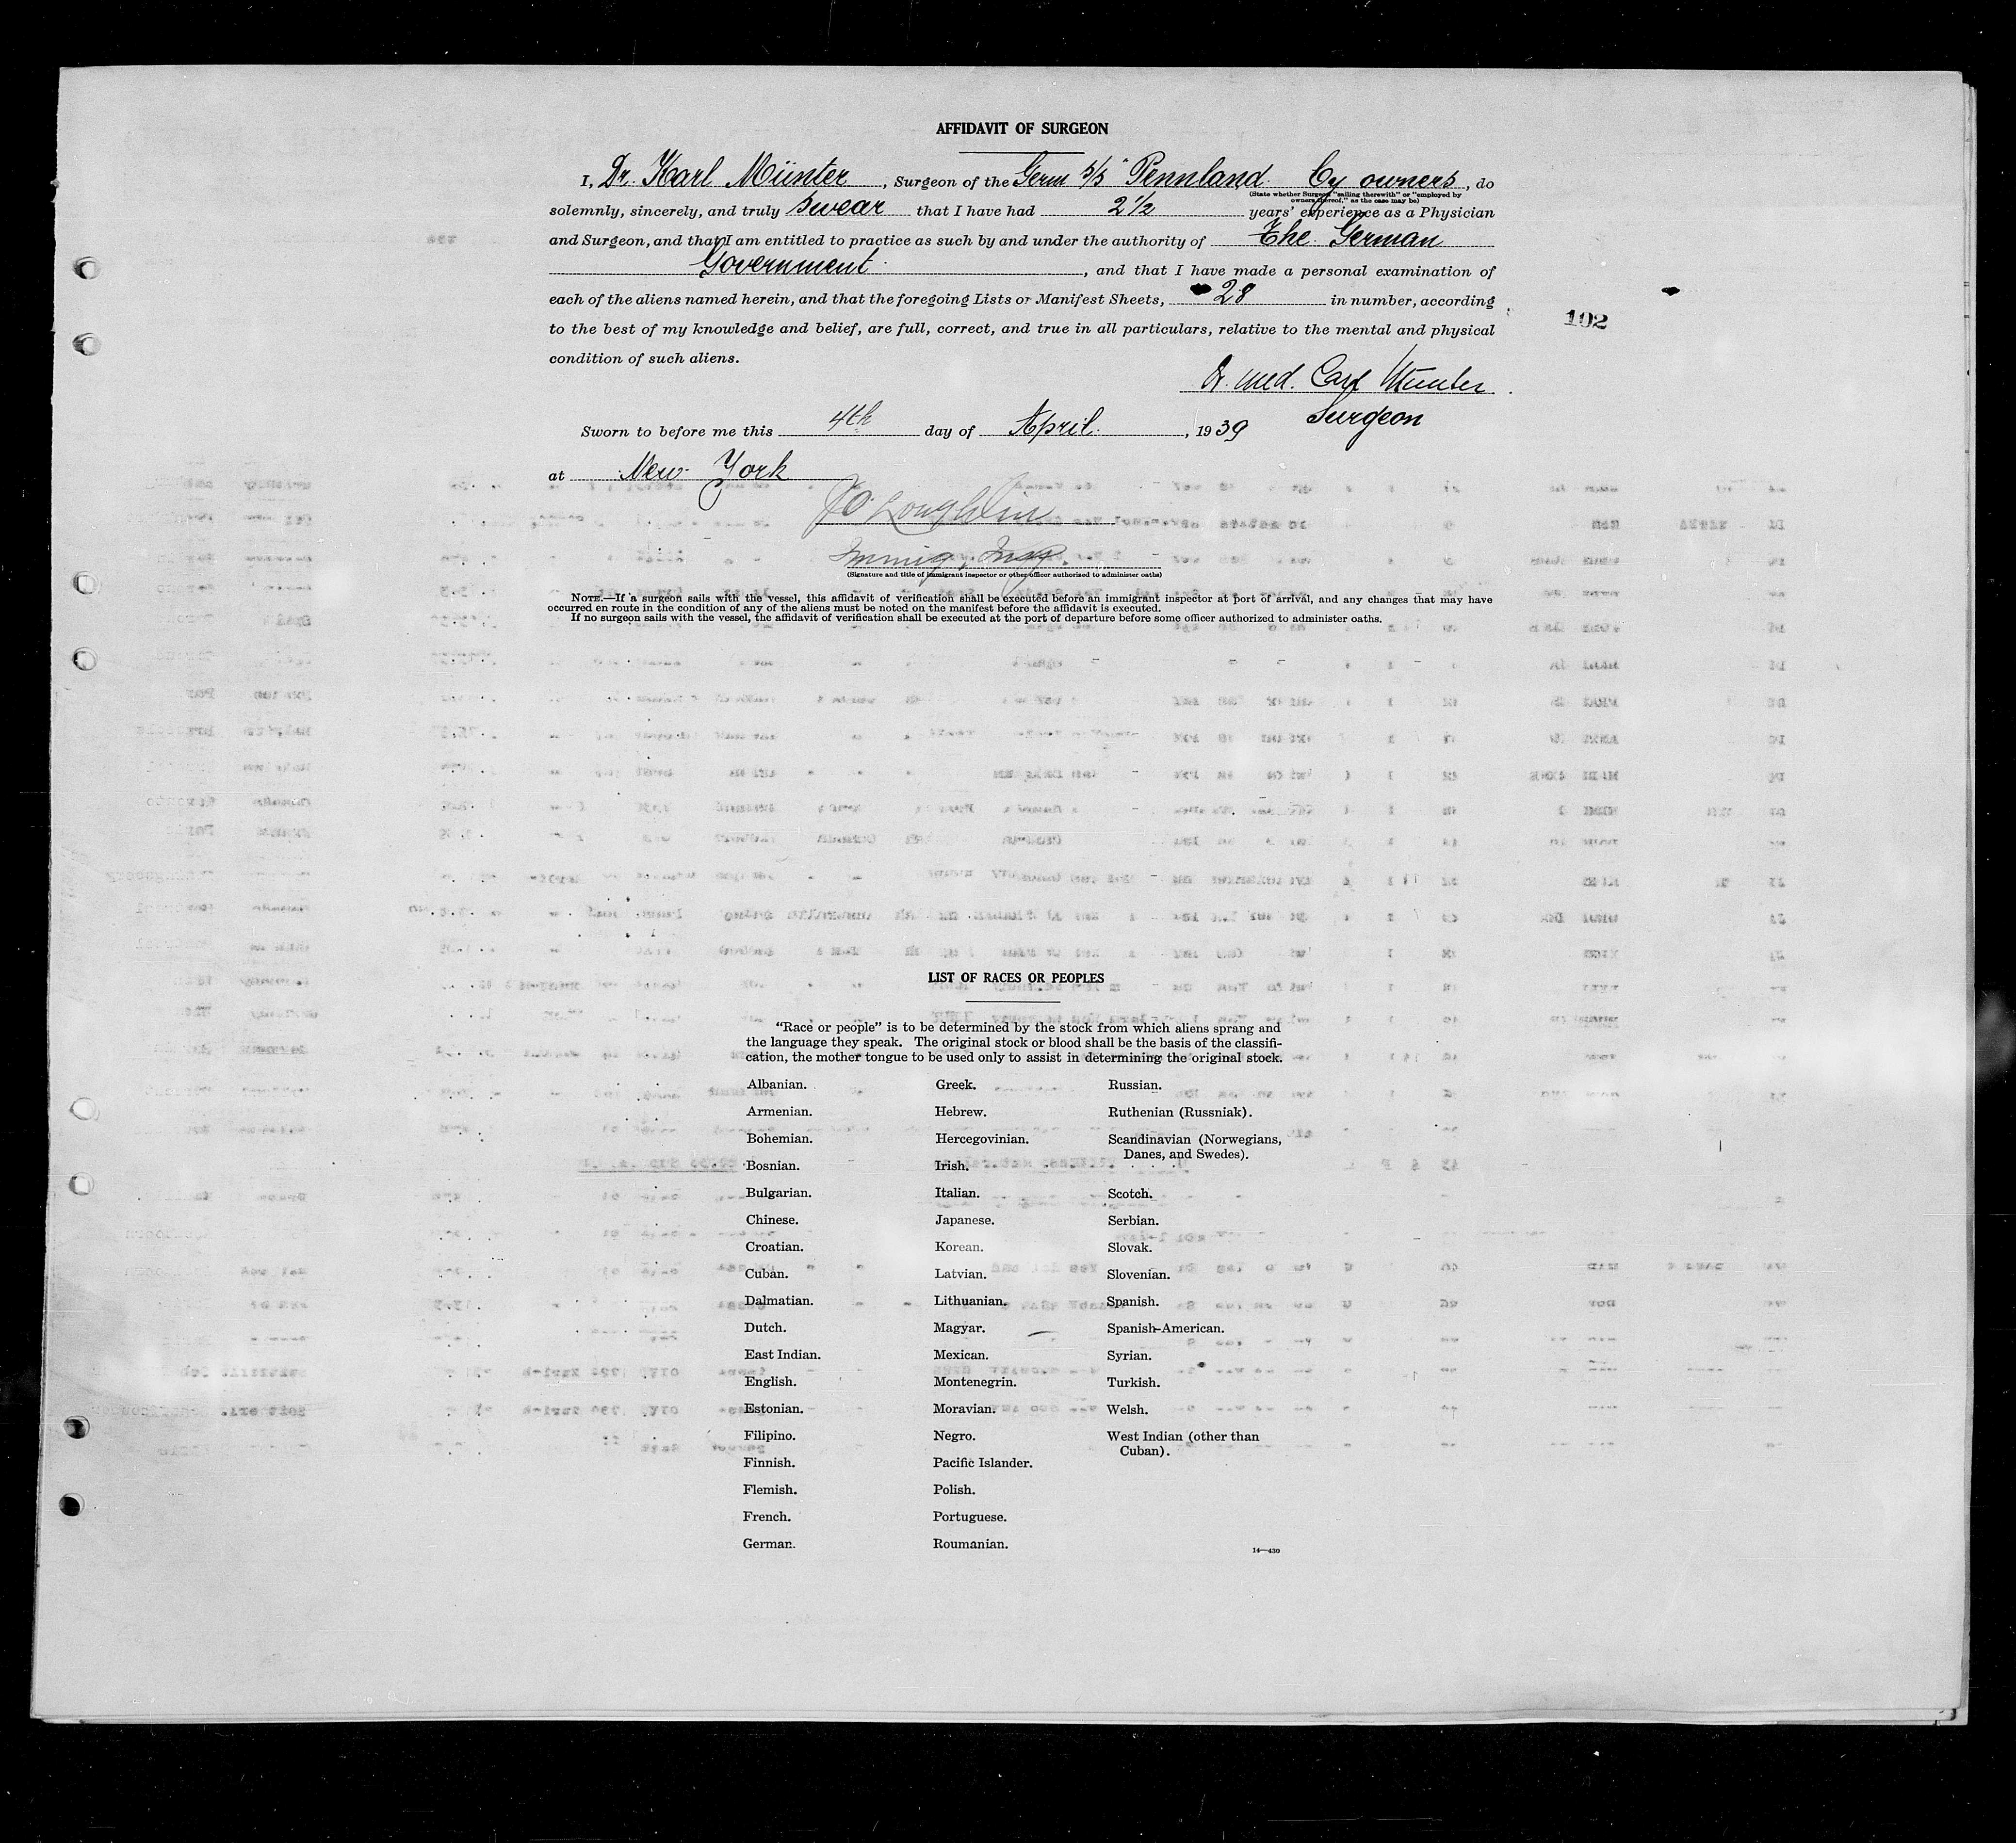 AFFIDAVIT OF SURGEON
I, Dr. Karl Münter, Surgeon of the Germ S/S "Pennland by owners, do
(State whether Surgeon "sailing therewith" or "employed by
owners thereof," as the case may be)
solemnly, sincerely, and truly swear that I have had 2 1/2 years' experience as a Physician
and Surgeon, and that I am entitled to practice as such by and under the authority of The German
Government, and that I have made a personal examination of
each of the aliens named herein, and that the foregoing Lists or Manifest Sheets, 28 in number, according
to the best of my knowledge and belief, are full, correct, and true in all particulars, relative to the mental and physical
condition of such aliens.
102
Dr. med. Carl Münter
Surgeon
Sworn to before me this 4th day of April, 1939
at New York
O'Loughlin
Immig. Insp.
(Signature and title of immigrant inspector or other officer authorized to administer oaths)
NOTE.—If a surgeon sails with the vessel, this affidavit of verification shall be executed before an immigrant inspector at port of arrival, and any changes that may have
occurred en route in the condition of any of the aliens must be noted on the manifest before the affidavit is executed.
If no surgeon sails with the vessel, the affidavit of verification shall be executed at the port of departure before some officer authorized to administer oaths.
LIST OF RACES OR PEOPLES
"Race or people" is to be determined by the stock from which aliens sprang and
the language they speak. The original stock or blood shall be the basis of the classifi-
cation, the mother tongue to be used only to assist in determining the original stock.
Albanian.
Armenian.
Bohemian.
Bosnian.
Bulgarian.
Chinese.
Croatian.
Cuban.
Dalmatian.
Dutch.
East Indian.
English.
Estonian.
Filipino.
Finnish.
Flemish.
French.
German.
Greek.
Hebrew.
Hercegovinian.
Irish.
Italian.
Japanese.
Korean.
Latvian.
Lithuanian.
Magyar.
Mexican.
Montenegrin.
Moravian.
Negro.
Pacific Islander.
Polish.
Portuguese.
Roumanian.
Russian.
Ruthenian (Russniak).
Scandinavian (Norwegians,
Danes, and Swedes).
Scotch.
Serbian.
Slovak.
Slovenian.
Spanish.
Spanish-American.
Syrian.
Turkish.
Welsh.
West Indian (other than
Cuban).
14—430